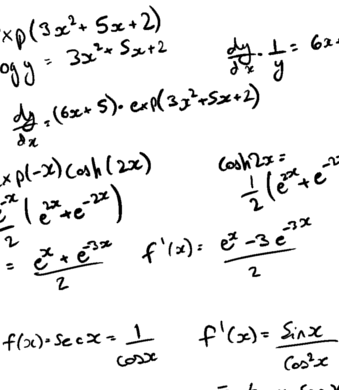 xp(3x²+5x+2)
og y = 3x²+5x+2
dy/dx · 1/y = 6x+
dy/dx = (6x+5)·exp(3x²+5x+2)
xp(-x)cosh(2x)
cosh2x =
e⁻ˣ/2 (e²ˣ+e⁻²ˣ)
1/2 (e²ˣ+e⁻²
= (eˣ+e⁻³ˣ)/2
f'(x) = (eˣ-3e⁻³ˣ)/2
f(x)=secx = 1/cosx
f'(x) = sinx/cos²x